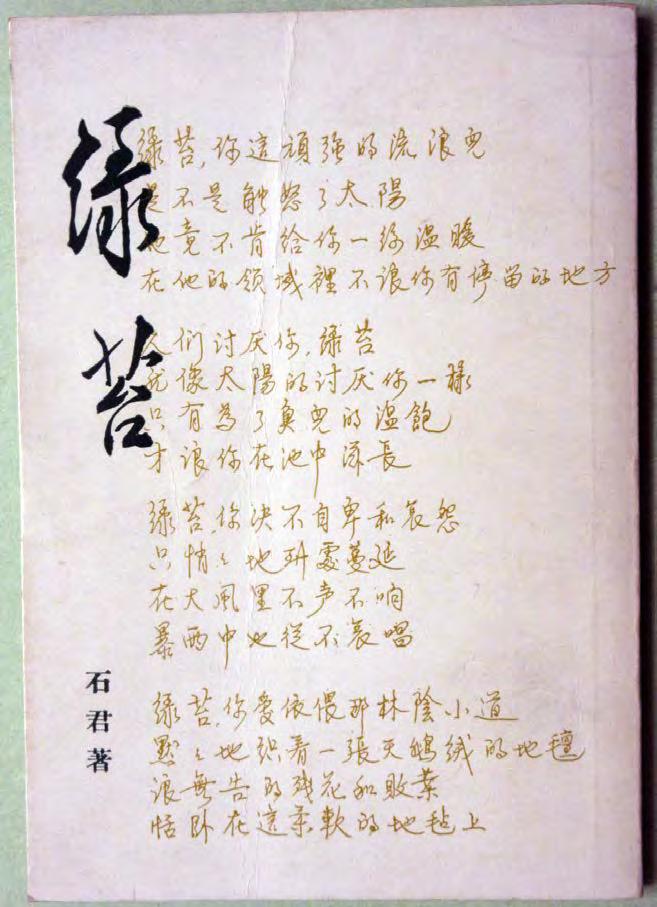 绿苔
绿苔,你這頑強的流浪兒
是不是触怒了太陽
他竟不肯给你一絲温暖
在他的领域裡不讓你有停留的地方
人们讨厌你,绿苔
就像太陽的讨厌你一樣
只有為了魚兒的温飽
才讓你在池中滋長
绿苔,你決不自卑和哀怨
只悄々地到處蔓延
在大風里不声不响
暴雨中也從不哀唱
绿苔,你愛依偎那林陰小道
默々地织着一張天鵝绒的地氊
讓無告的残花和敗葉
恬卧在這柔軟的地毡上
石君著